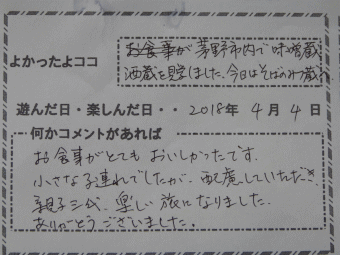 よかったよココ
お食事が茅野市内で味噌蔵
酒蔵を
ました、今日はそばのみ蔵
遊んだ日・楽しんだ日・・ 2018年 4月 4日
何かコメントがあれば
お食事がとてもおいしかったです。
小さな子連れでしたが、配慮していただき
親子三代、楽しい旅になりました。
ありがとうございました。